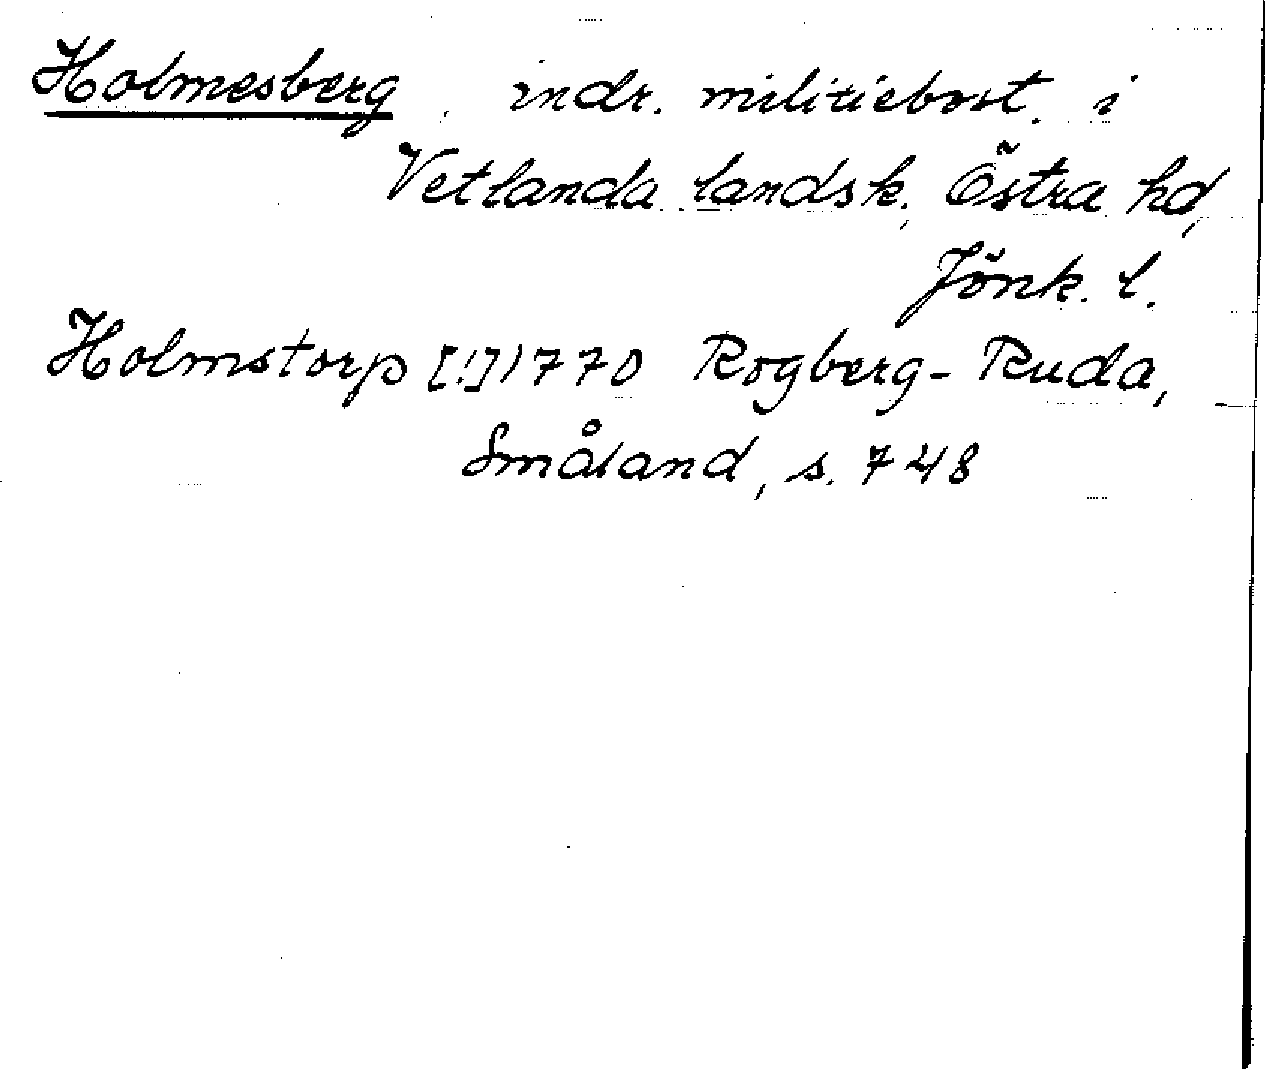 Holmesberg, indr. militiebost. i
Vetlanda landsk., Östra hd,
Jönk. l.
Holmstorp [!] 1770 Rogberg-Ruda,
Småland, s. 748